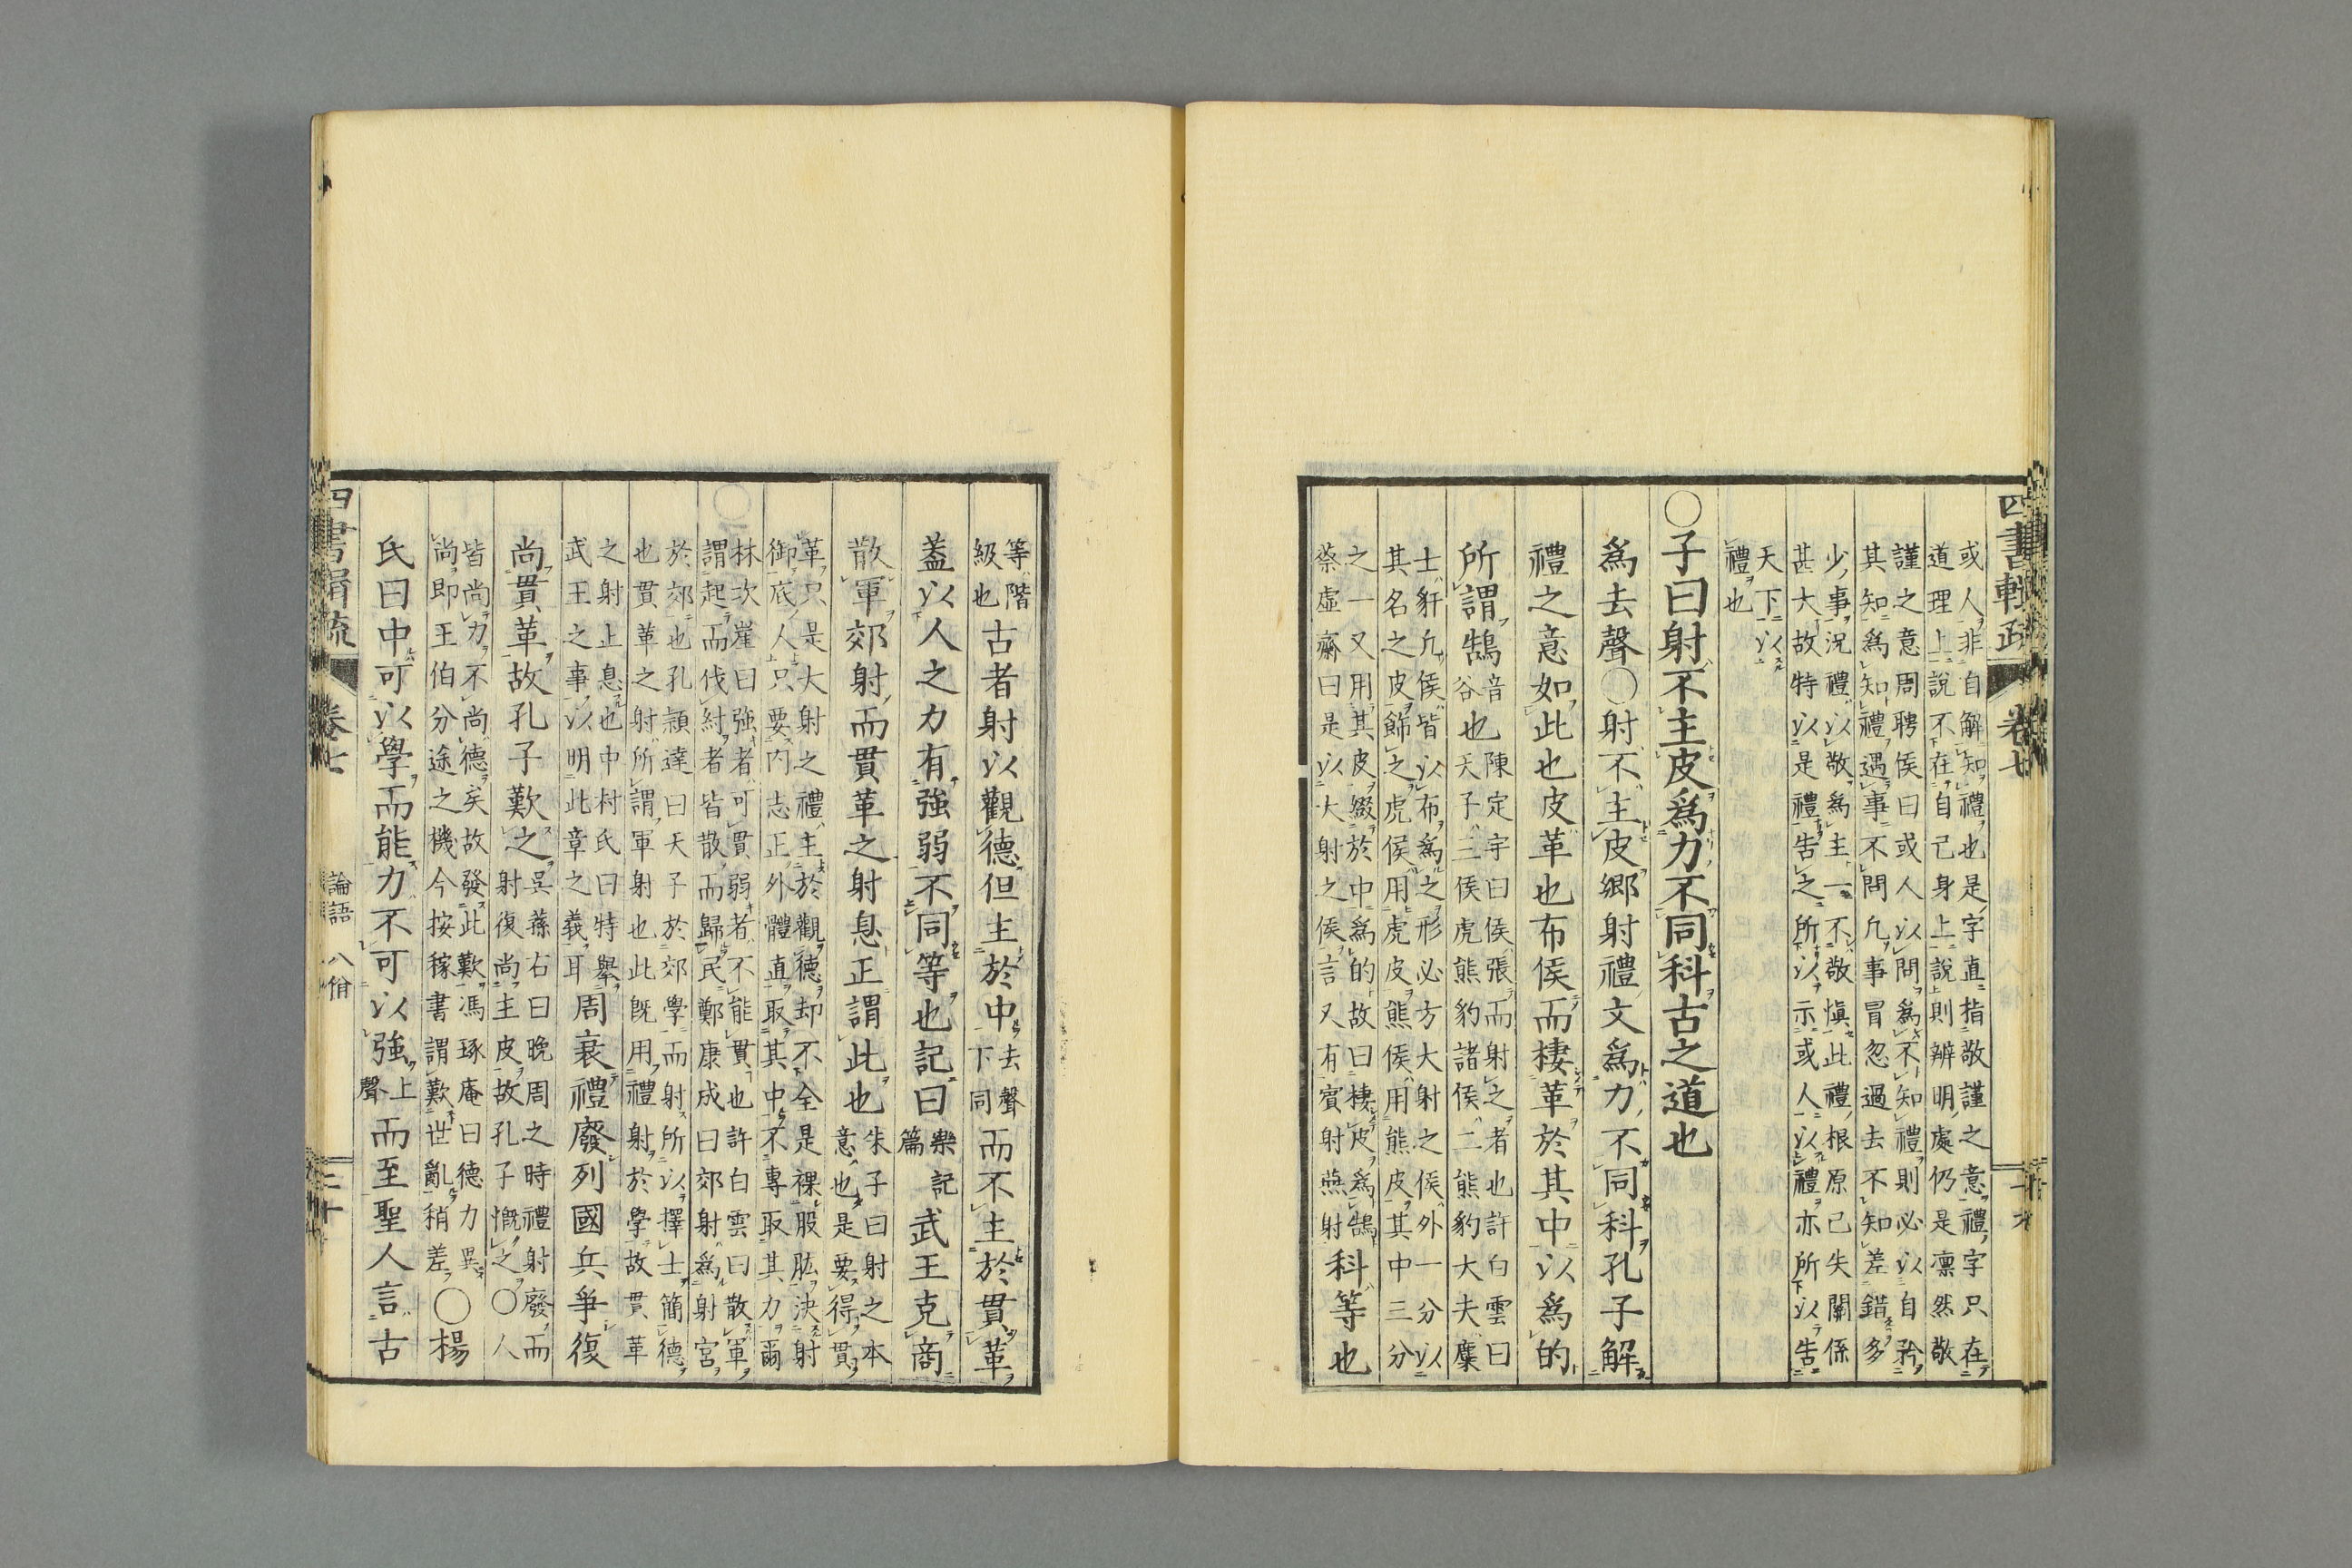 或人非自解知禮也是字直指敬謹之意禮字只在
道理上說不在自己身上說則辨明處仍是凛然敬
謹之意周聘侯曰或人以問爲不知禮則必以自矜
其知爲知禮遇事不問凢事冒忽過去不知差錯多
少事況禮以敬爲主一不敬愼此禮根原已失關係
甚大故特以是禮告之所以示或人以禮亦所以告
天下以
禮也
〇子曰射不主皮爲力不同科古之道也
爲去聲〇射不主皮鄉射禮文爲力不同科孔子解
禮之意如此也皮革也布侯而棲革於其中以爲的
所謂鵠音
谷也陳定宇曰侯張而射之者也許白雲曰
天子三侯虎熊豹諸侯二熊豹大夫麋
士豻凢侯皆以布爲之形必方大射之侯外一分以
其名之皮飾之虎侯用虎皮熊侯用熊皮其中三分
之一又用其皮綴於中爲的故曰棲皮爲鵠
蔡虛齋曰是以大射之侯言又有賓射燕射科等也
等階
級也古者射以觀德但主於中去聲
下同而不主於貫革
蓋以人之力有強弱不同等也記曰樂記
篇武王克商
散軍郊射而貫革之射息正謂此也朱子曰射之本
意也是要得貫
革只是大射之禮主於觀德却不全是裸股肱決射
御底人只要内志正外體直取其中不專取其力爾
林次崖曰強者可貫弱者不能貫也許白雲曰散軍
謂起而伐紂者皆散而歸民鄭康成曰郊射爲射宮
於郊也孔穎達曰天子於郊學而射所以擇士簡德
也貫革之射所謂軍射也此旣用禮射於學故貫革
之射止息也中村氏曰特舉
武王之事以明此章之義耳周衰禮廢列國兵爭復
尚貫革故孔子歎之吳蓀右曰晚周之時禮射廢而
射復尚主皮故孔子慨之〇人
皆尚力不尚德矣故發此歎馮琢庵曰德力異
尚即王伯分途之機今按稼書謂歎世亂稍差〇楊
氏曰中可以學而能力不可以強上
聲而至聖人言古
四書輯疏
卷七
論語 八佾
二十